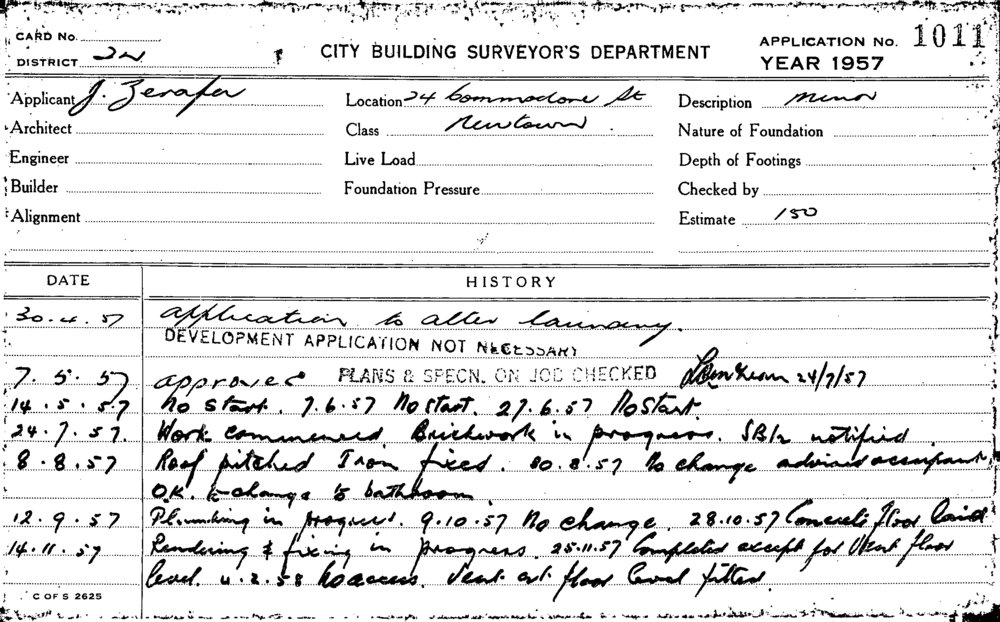 CARD No.
DISTRICT 24
CITY BUILDING SURVEYOR'S DEPARTMENT
APPLICATION No. 1011
YEAR 1957
Applicant J. Zerafer
Location 24 Commodore St
Description minor
Architect
Class Newtown
Nature of Foundation
Engineer
Live Load
Depth of Footings
Builder
Foundation Pressure
Checked by
Alignment
Estimate 150
DATE
HISTORY
30.4.57 application to alter laundry.
DEVELOPMENT APPLICATION NOT NECESSARY
7.5.57 approved PLANS & SPECN. ON JOB CHECKED 24/7/57
14.5.57 No start. 7.6.57 No start. 27.6.57 No Start.
24.7.57. Work commenced. Brickwork in progress. notified.
8.8.57 Roof pitched Iron fixed. 30.8.57 No change advised occupant
O.K. to change to bathroom.
12.9.57 Plumbing in progress. 9.10.57 No change. 28.10.57 Concrete floor laid
14.11.57 Rendering & fixing in progress. 25.11.57 Completed except for Vent floor
level. 4.2.58 No access. Vent at floor level fitted
C OF S 2625